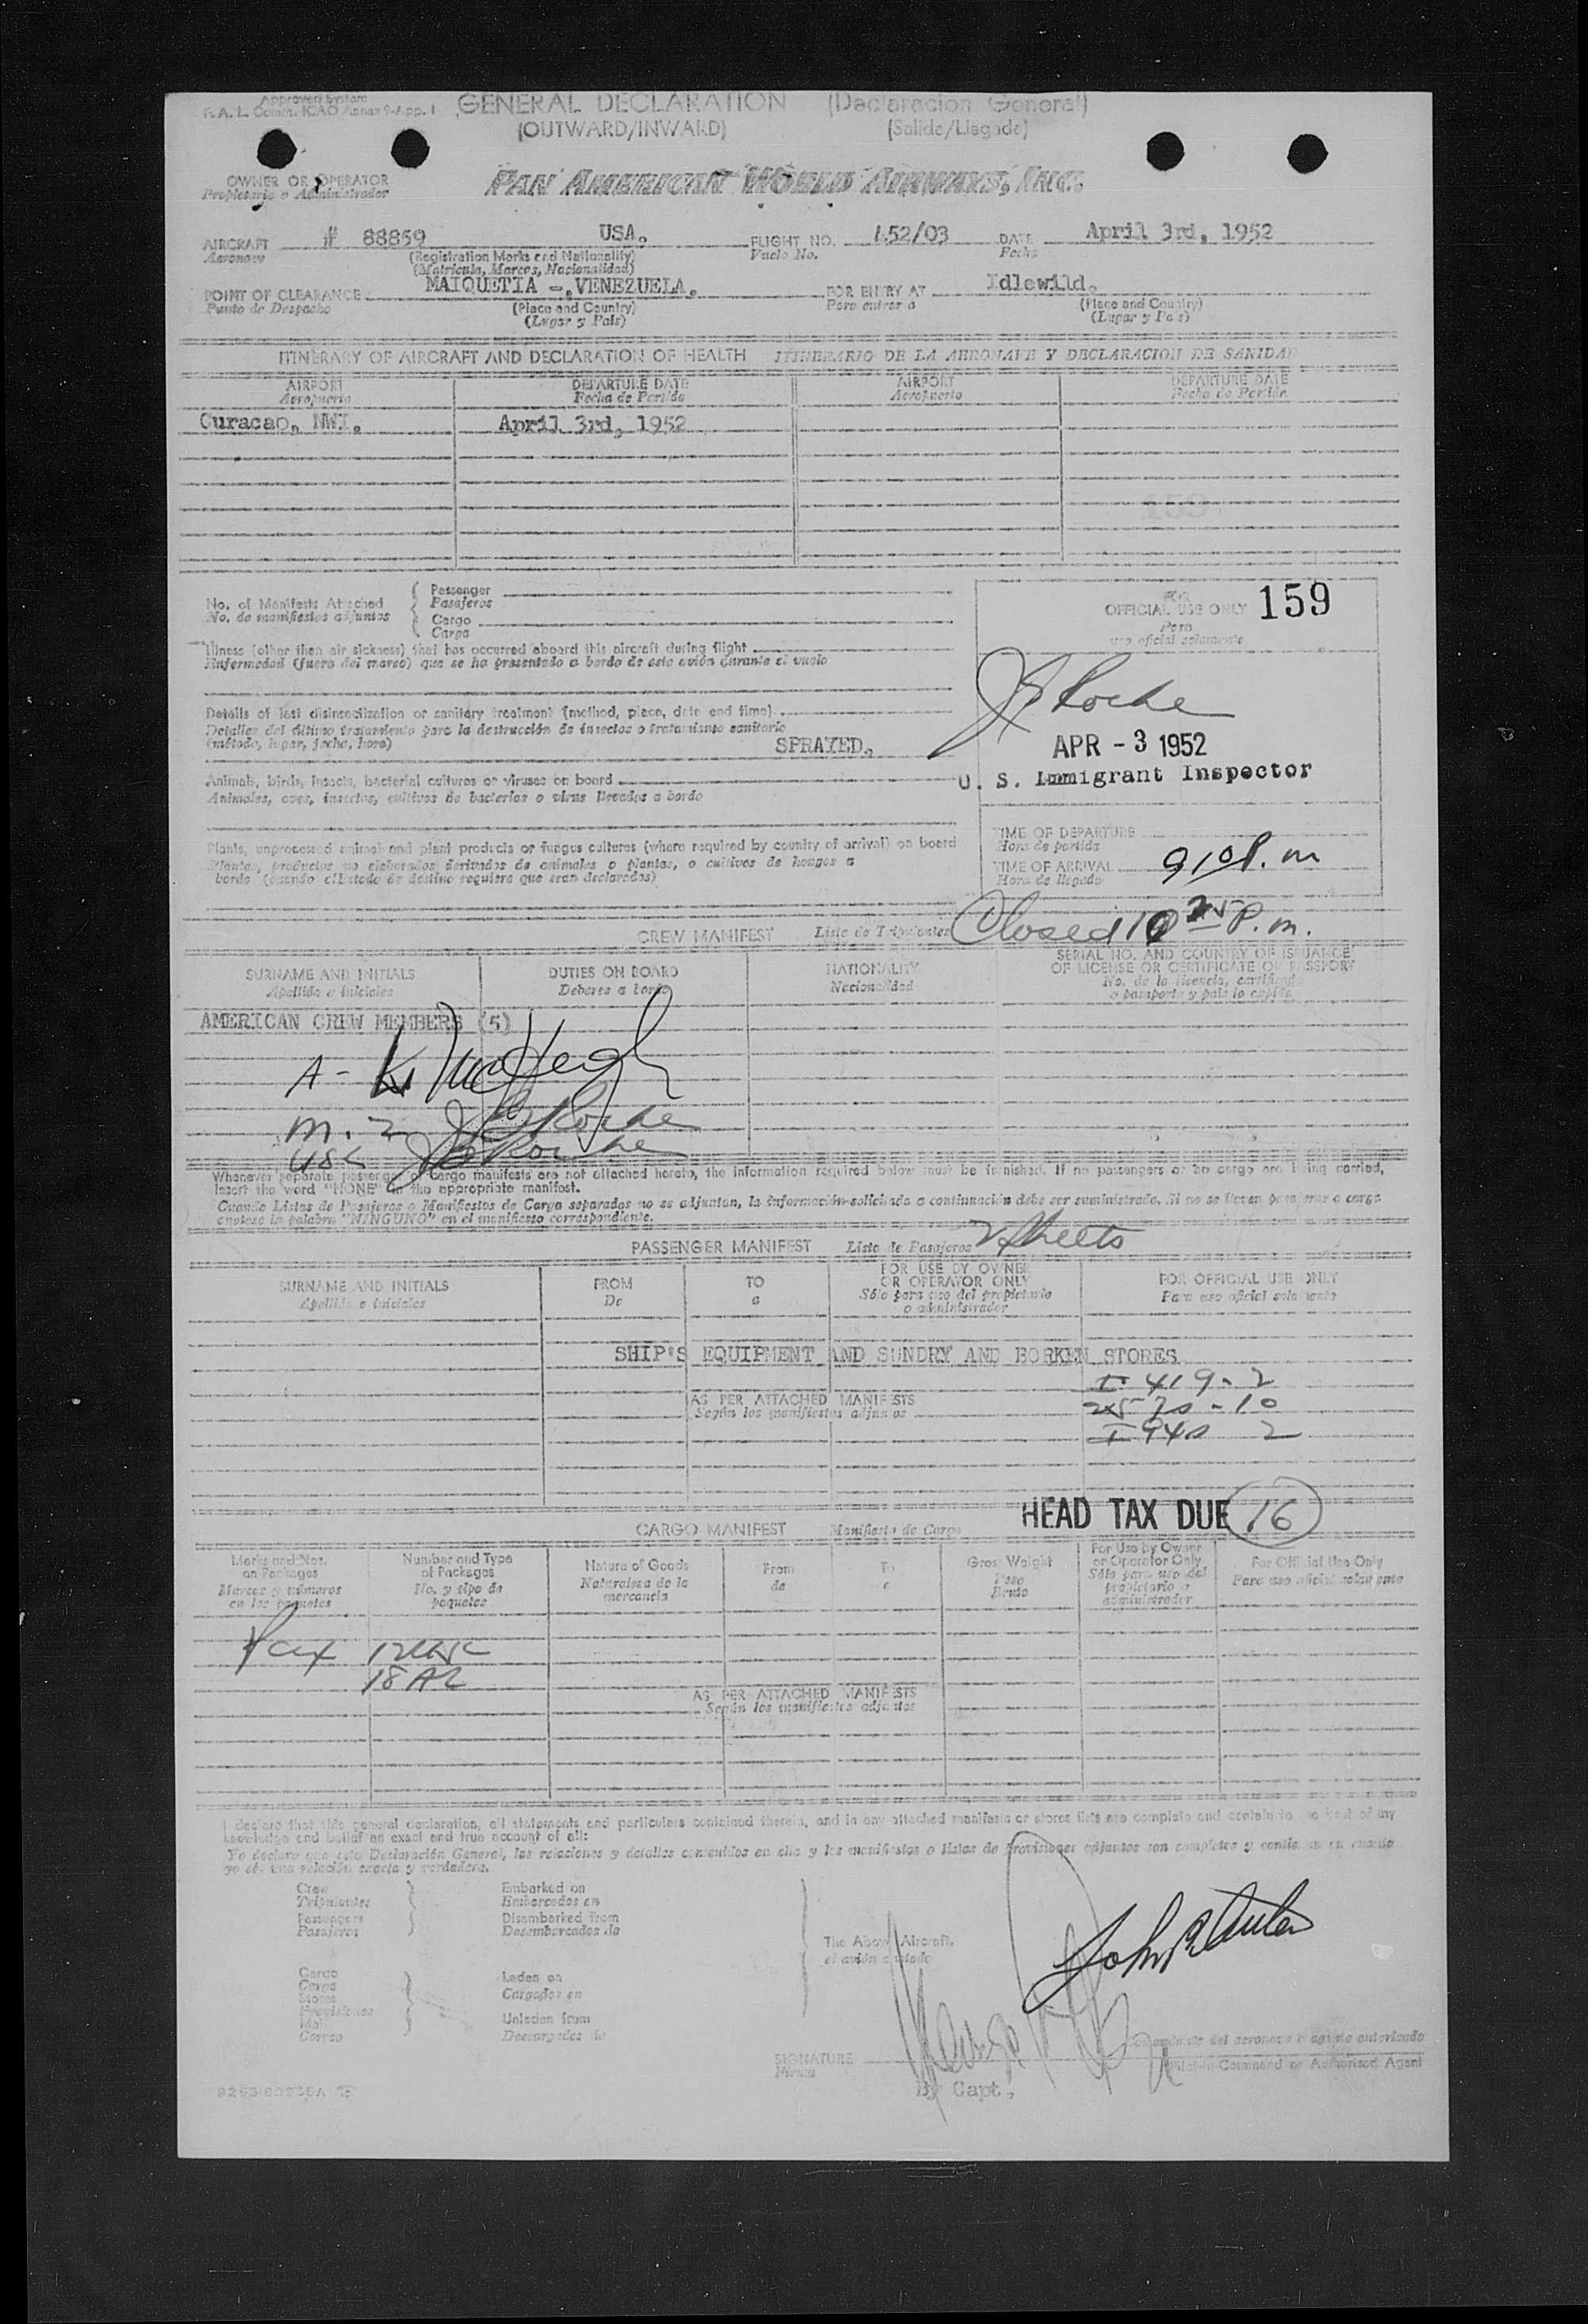 Approved System
F. A. L. Comm. ICAO Annex 9-App. 1
GENERAL DECLARATION (Declaracion General)
(OUTWARD/INWARD) (Salida/Llegada)
OWNER OR OPERATOR
Propietario o Administrador
PAN AMERICAN WORLD AIRWAYS, INC.
AIRCRAFT # 88859 USA. FLIGHT NO. 452/03 DATE April 3rd, 1952
Aeronave (Registration Marks and Nationality) Vuelo No. Fecha
(Matricula, Marcas, Nacionalidad)
POINT OF CLEARANCE MAIQUETIA -, VENEZUELA. FOR ENTRY AT Idlewild.
Punto de Despacho (Place and Country) Para entrar a (Place and Country)
(Lugar y Pais) (Lugar y Pais)
ITINERARY OF AIRCRAFT AND DECLARATION OF HEALTH ITINERARIO DE LA AERONAVE Y DECLARACION DE SANIDAD
AIRPORT DEPARTURE DATE AIRPORT DEPARTURE DATE
Aeropuerto Fecha de Partida Aeropuerto Fecha de Partida
Curacao, NWI. April 3rd, 1952
159
No. of Manifests Attached
No. de manifiestos adjuntos
Passenger
Pasajeros
Cargo
Carga
FOR
OFFICIAL USE ONLY 159
Para
uso oficial solamente
Illness (other than air sickness) that has occurred aboard this aircraft during flight
Enfermedad (fuera del mareo) que se ha presentado a bordo de este avión durante el vuelo
Details of last disinsectization or sanitary treatment (method, place, date and time)
Detalles del último tratamiento para la destrucción de insectos o tratamiento sanitario
(método, lugar, fecha, hora) SPRAYED.
Roche
APR - 3 1952
U. S. Immigrant Inspector
Animals, birds, insects, bacterial cultures or viruses on board
Animales, aves, insectos, cultivos de bacterias o virus llevados a bordo
Plants, unprocessed animal and plant products or fungus cultures (where required by country of arrival) on board
Plantas, productos no elaborados derivados de animales o plantas, o cultivos de hongos a
bordo (cuando el Estado de destino requiera que sean declarados)
TIME OF DEPARTURE
Hora de partida
TIME OF ARRIVAL 910 P. m
Hora de llegada
Closed 10 25 P. m.
CREW MANIFEST Lista de Tripulantes
SURNAME AND INITIALS DUTIES ON BOARD NATIONALITY SERIAL NO. AND COUNTRY OF ISSUANCE
Apellido e iniciales Deberes a bordo Nacionalidad OF LICENSE OR CERTIFICATE OR PASSPORT
No. de la licencia, certificado
o pasaporte y pais lo expide
AMERICAN CREW MEMBERS (5)
A -
m. 2 Roche
USC Roche
Whenever separate passenger or cargo manifests are not attached hereto, the information required below must be furnished. If no passengers or no cargo are being carried,
insert the word "NONE" in the appropriate manifest.
Cuando Listas de Pasajeros o Manifiestos de Carga separados no se adjuntan, la información solicitada a continuación debe ser suministrada. Si no se llevan pasajeros o carga
anotese la palabra "NINGUNO" en el manifiesto correspondiente.
PASSENGER MANIFEST Lista de Pasajeros 2 Sheets
SURNAME AND INITIALS FROM TO FOR USE BY OWNER FOR OFFICIAL USE ONLY
Apellido e iniciales De a OR OPERATOR ONLY Para uso oficial solamente
Sólo para uso del propietario
o administrador
SHIP'S EQUIPMENT AND SUNDRY AND BORKEN STORES
I 419 - 2
257a - 10
I 94a 2
AS PER ATTACHED MANIFESTS
Según los manifiestos adjuntos
HEAD TAX DUE 16
CARGO MANIFEST Manifiesto de Carga
Marks and Nos. on Packages
Marcas y números en los paquetes
Number and Type of Packages
No. y tipo de paquetes
Nature of Goods
Naturaleza de la mercancía
From
de
To
a
Gross Weight
Peso Bruto
For Use by Owner or Operator Only
Sólo para uso del propietario o administrador
For Official Use Only
Para uso oficial solamente
Pax 12 USC
18 AL
AS PER ATTACHED MANIFESTS
Según los manifiestos adjuntos
I declare that this general declaration, all statements and particulars contained therein, and in any attached manifests or stores lists are complete and contain to the best of my
knowledge and belief an exact and true account of all:
Yo declaro que esta Declaración General, las relaciones y detalles contenidos en ella y los manifiestos o listas de provisiones adjuntos son completos y contienen en cuanto
yo sé, una relación exacta y verdadera.
Crew Embarked on
Tripulantes Embarcados en
Passengers Disembarked from
Pasajeros Desembarcados de
The Above Aircraft.
el avión citado
Cargo Laden on
Carga Cargados en
Stores
Provisiones
Mail Unladen from
Correo Descargados de
SIGNATURE
Firma
Comandante del aeronave o agente autorizado
Pilot-in-Command or Authorized Agent
By Capt.